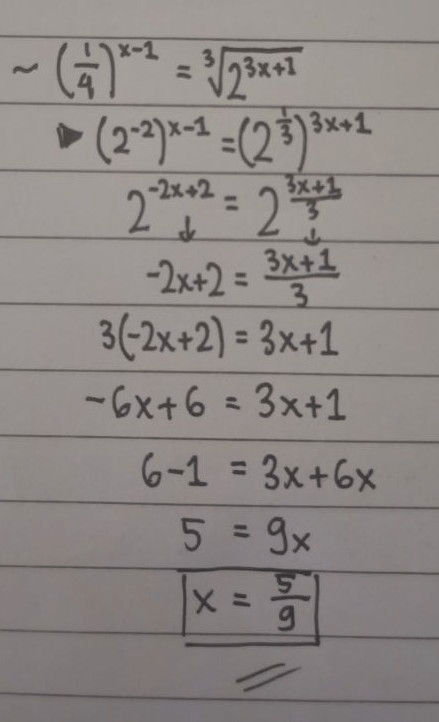 ~ (1/4)^(x-1) = ∛(2^(3x+1))
▶ (2^(-2))^(x-1) = (2^(1/3))^(3x+1)
2^(-2x+2) = 2^((3x+1)/3)
↓ ↓
-2x+2 = (3x+1)/3
3(-2x+2) = 3x+1
-6x+6 = 3x+1
6-1 = 3x+6x
5 = 9x
x = 5/9